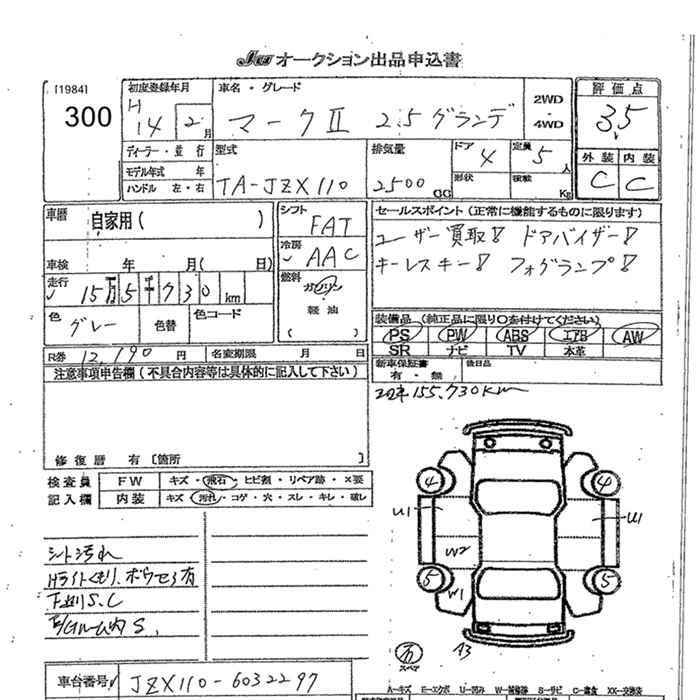 JU オークション出品申込書
[1984]
300
初度登録年月
H 14 2 月
車名・グレード
マークⅡ 2.5 グランデ
2WD
・
4WD
評価点
3.5
外装 内装
C C
ディーラー・並行
モデル年式 年
ハンドル 左・右
型式
TA-JZX110
排気量
2500 CC
ドア 4
定員 5 人
形状
積載 Kg
車暦 自家用( )
シフト FAT
セールスポイント(正常に機能するものに限ります)
ユーザー買取! ドアバイザー!
キーレスキー! フォグランプ!
車検 年 月( 日)
冷房 AAC
走行 15万5千730km
燃料
ガソリン
・
軽油
( )
色 グレー
色替
色コード
装備品(純正品に限り○を付けてください)
PS PW ABS エアB AW
SR ナビ TV 本革
R券 12,190 円
名変期限 月 日
新車保証書
有・無
後日品
注意事項申告欄(不具合内容等は具体的に記入して下さい)
155,730km
修復暦 有〔箇所 〕
検査員 FW キズ・飛石・ヒビ割・リペア跡・×要
記入欄 内装 キズ・汚れ・コゲ・穴・スレ・キレ・破レ
4 4
U1 U1
W2
5 5
W1
A3
シート汚れ
Hライトくもり、ボウセラ有
下廻りS、C
E/Gルーム内S、
スペア
車台番号 JZX110-6032297
A-キズ E-エクボ U-凹み W-補修跡 S-サビ C-腐食 XX-交換済